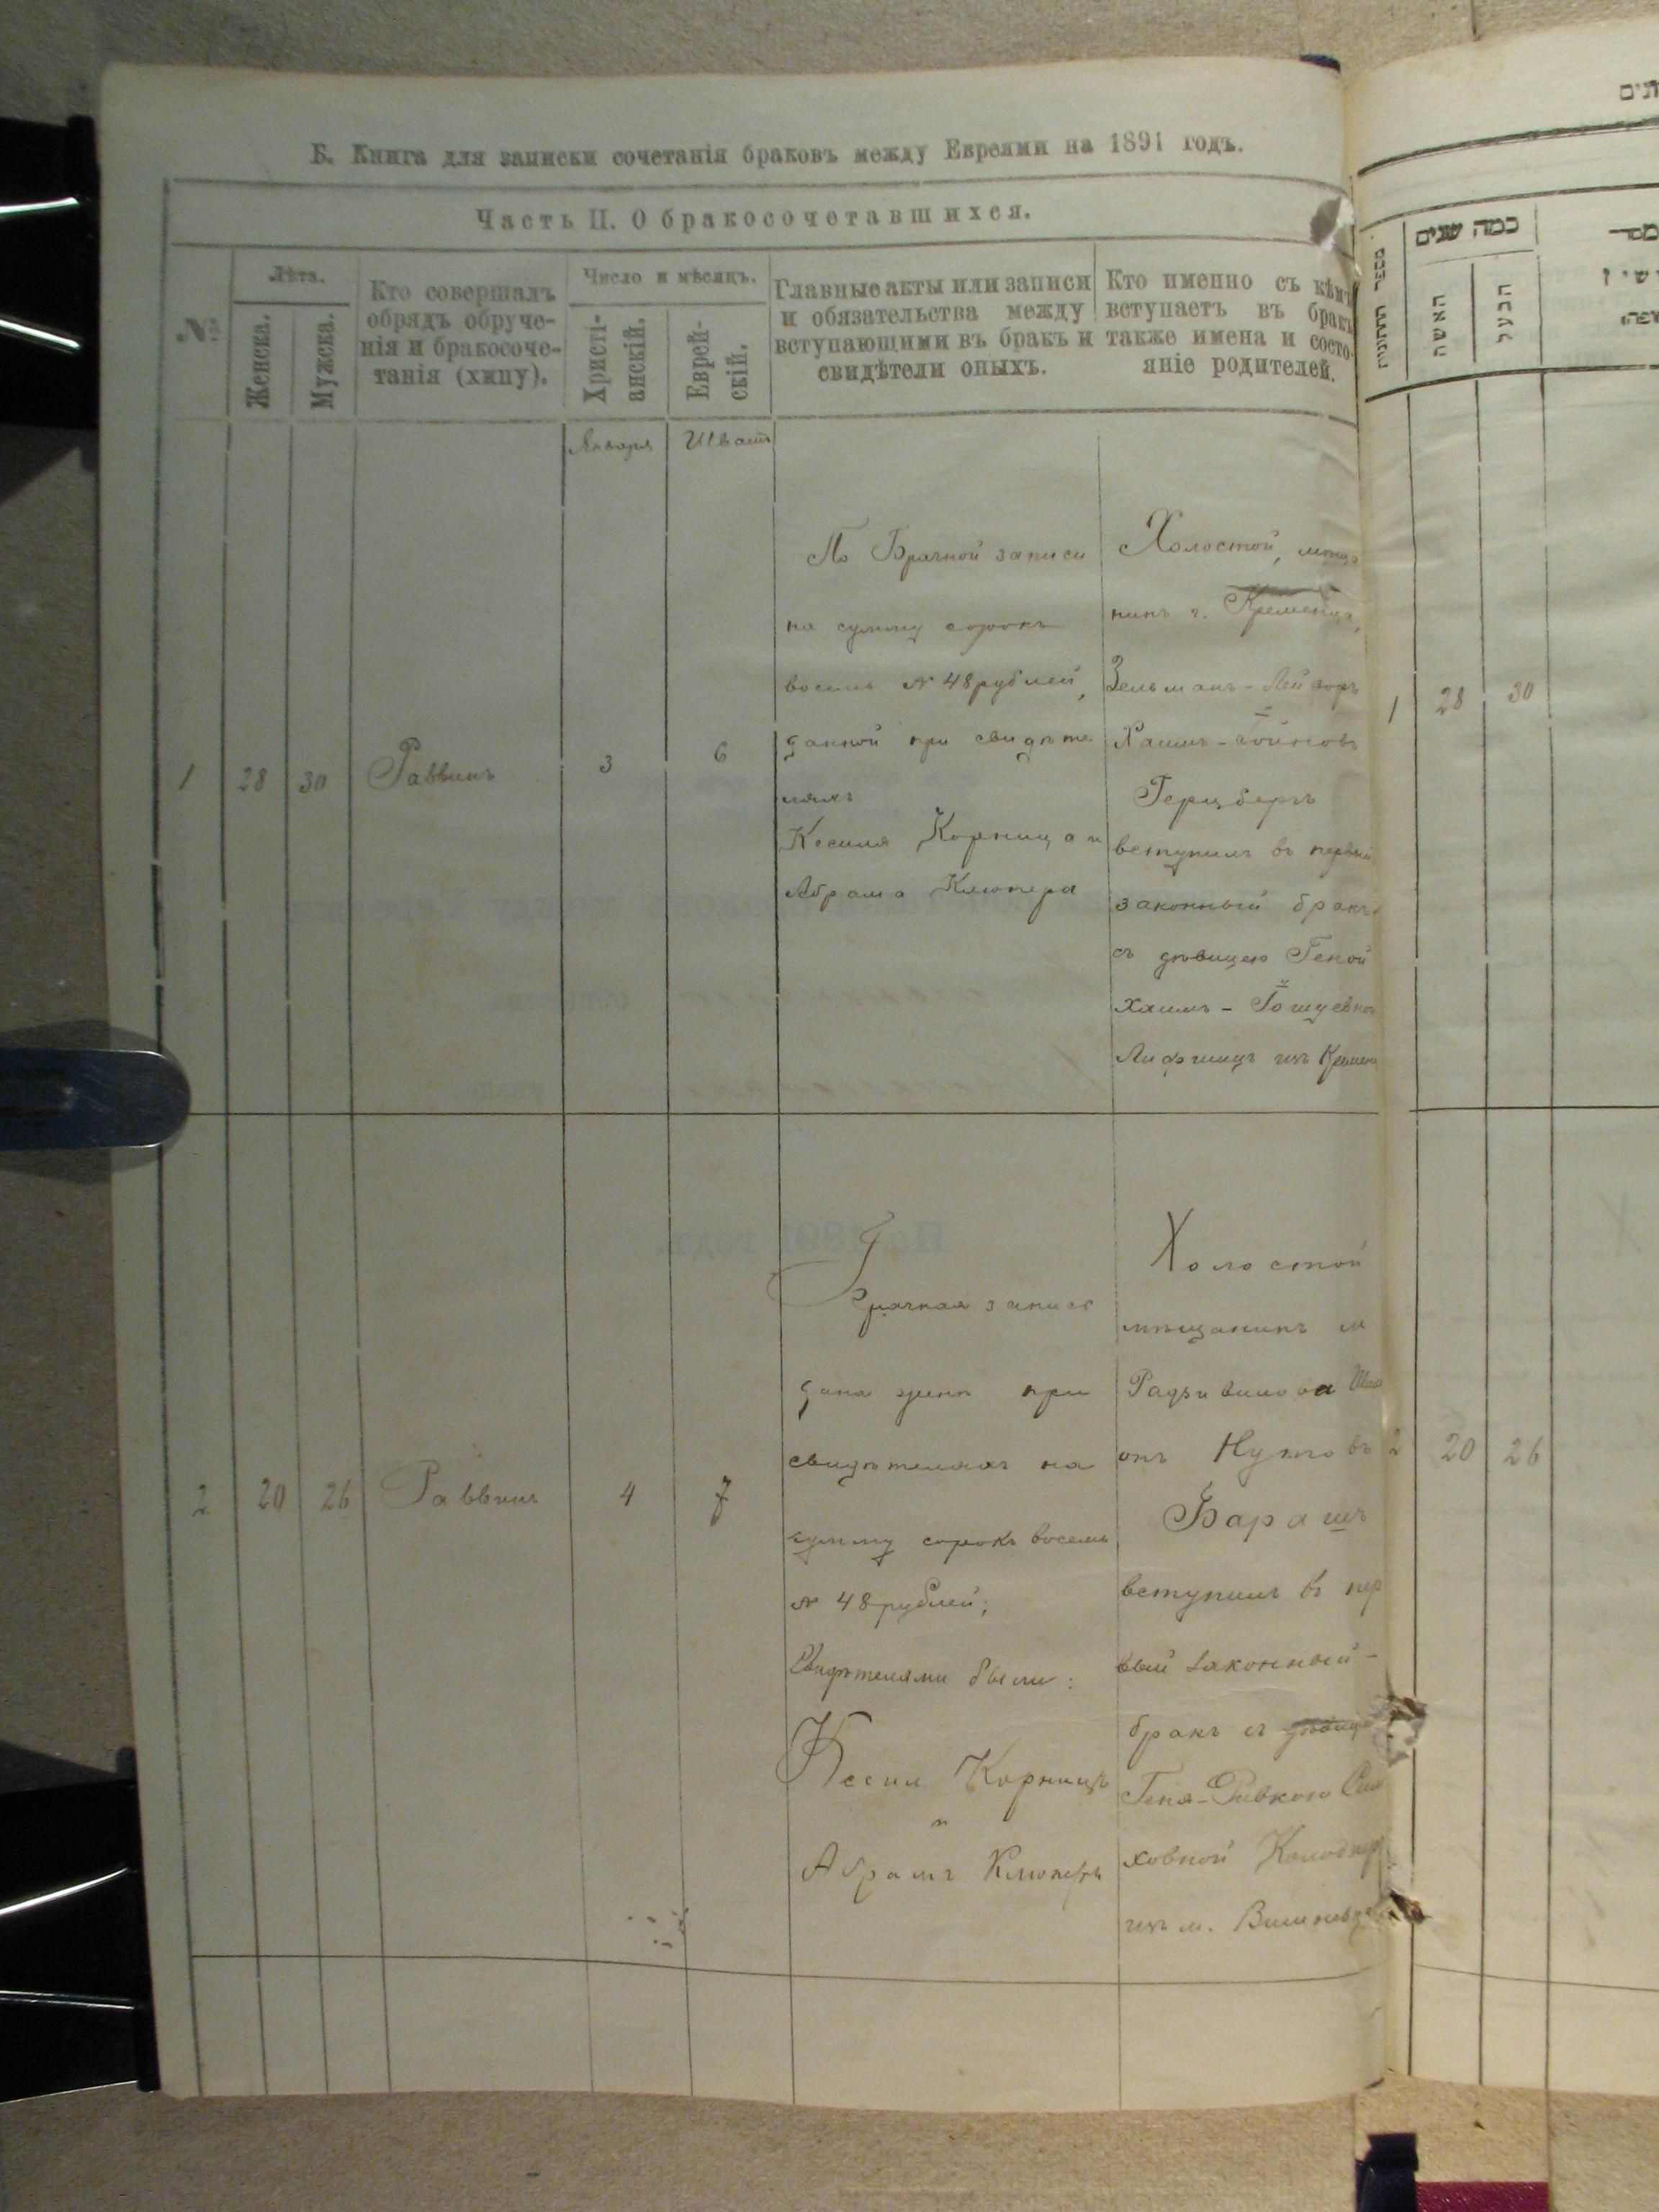 Б. Книга для записки сочетанія браковъ между Евреями на 1891 годъ.
Часть II. О бракосочетавшихся.
№
Лѣта.
Женска.
Мужска.
Кто совершалъ
обрядъ обруче-
нія и бракосоче-
танія (хжпу).
Число и мѣсяцъ.
Христі-
анскій.
Еврей-
скій.
Главные акты или записи
и обязательства между
вступающими въ бракъ и
свидѣтели оныхъ.
Кто именно съ кѣмъ
вступаетъ въ бракъ
также имена и состо-
яніе родителей.
Января
Шватъ
1
28
30
Раввинъ
3
6
По Брачной записи
на сумму сорокъ
восемь № 48 рублей,
данной при свидѣте
ляхъ
Кесиля Корница и
Абрама Клюпера
Холостой, мѣща
нинъ г. Кременца,
Зельманъ-Лейзоръ
Хаимъ-
Герцбергъ
вступилъ въ первый
законный бракъ
съ дѣвицею Геней
Хаимъ-
Лифшицъ изъ Кремен
2
20
26
Раввинъ
4
7
Брачная запись
дана женѣ при
свидѣтеляхъ на
сумму сорокъ восемь
№ 48 рублей;
Свидѣтелями были:
Кесил Корницъ
и
Абрамъ Клюперъ
Холостой
мѣщанинъ м
Радзивилова
онъ Нутовъ
Барашъ
вступилъ въ пер
вый законный -
бракъ съ дѣвице
Геня-Ривкою
ховной
изъ м.
תים
מספר החתונות
כמה שנים
האשה
הבעל
1
28
30
2
20
26